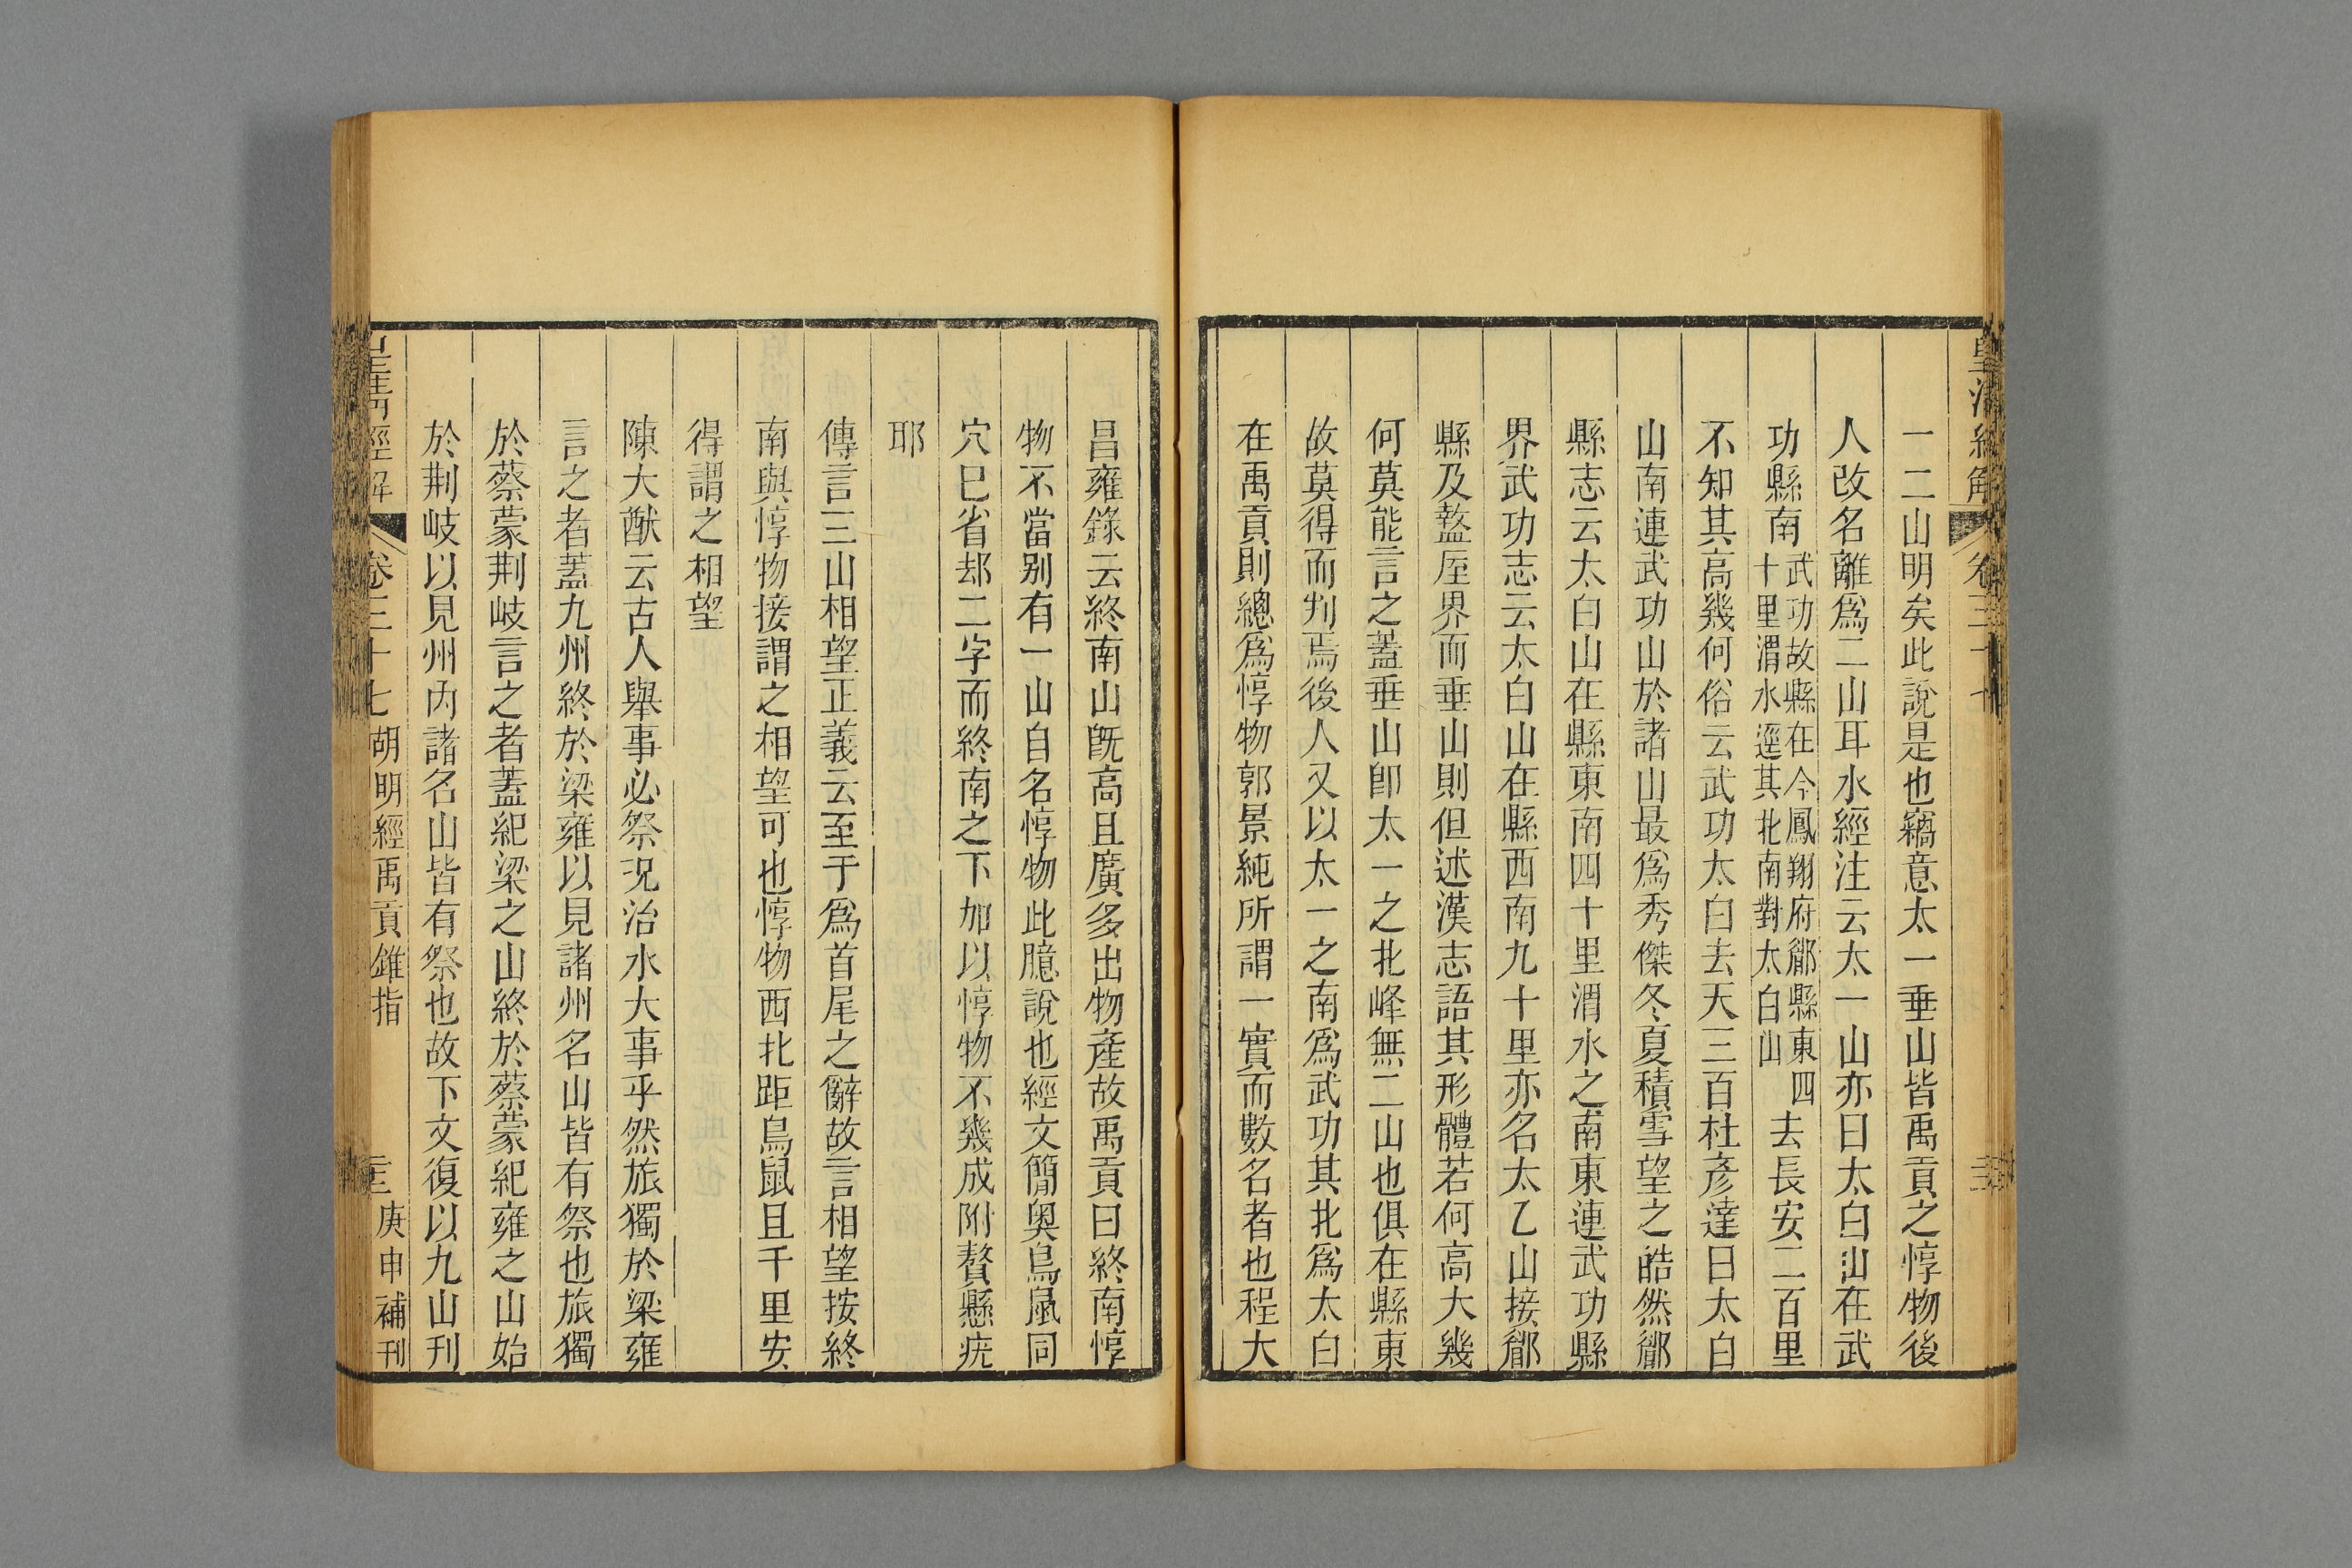 皇清經解
卷三十七
一二山明矣此說是也竊意太一垂山皆禹貢之惇物後
人改名離爲二山耳水經注云太一山亦曰太白山在武
功縣南武功故縣在今鳳翔府郿縣東四十里渭水逕其北南對太白山去長安二百里
不知其高幾何俗云武功太白去天三百杜彥達曰太白
山南連武功山於諸山最爲秀傑冬夏積雪望之皓然郿
縣志云太白山在縣東南四十里渭水之南東連武功縣
界武功志云太白山在縣西南九十里亦名太乙山接郿
縣及盩厔界而垂山則但述漢志語其形體若何高大幾
何莫能言之蓋垂山卽太一之北峰無二山也俱在縣東
故莫得而判焉後人又以太一之南爲武功其北爲太白
在禹貢則總爲惇物郭景純所謂一實而數名者也程大
昌雍錄云終南山旣高且廣多出物產故禹貢曰終南惇
物不當別有一山自名惇物此臆說也經文簡奧鳥鼠同
穴已省却二字而終南之下加以惇物不幾成附贅懸疣
耶
傳言三山相望正義云至于爲首尾之辭故言相望按終
南與惇物接謂之相望可也惇物西北距鳥鼠且千里安
得謂之相望
陳大猷云古人舉事必祭况治水大事乎然旅獨於梁雍
言之者蓋九州終於梁雍以見諸州名山皆有祭也旅獨
於蔡蒙荆岐言之者蓋紀梁之山終於蔡蒙紀雍之山始
於荆岐以見州內諸名山皆有祭也故下文復以九山刊
皇淸經解
卷三十七 胡明經禹貢錐指
庚申補刊